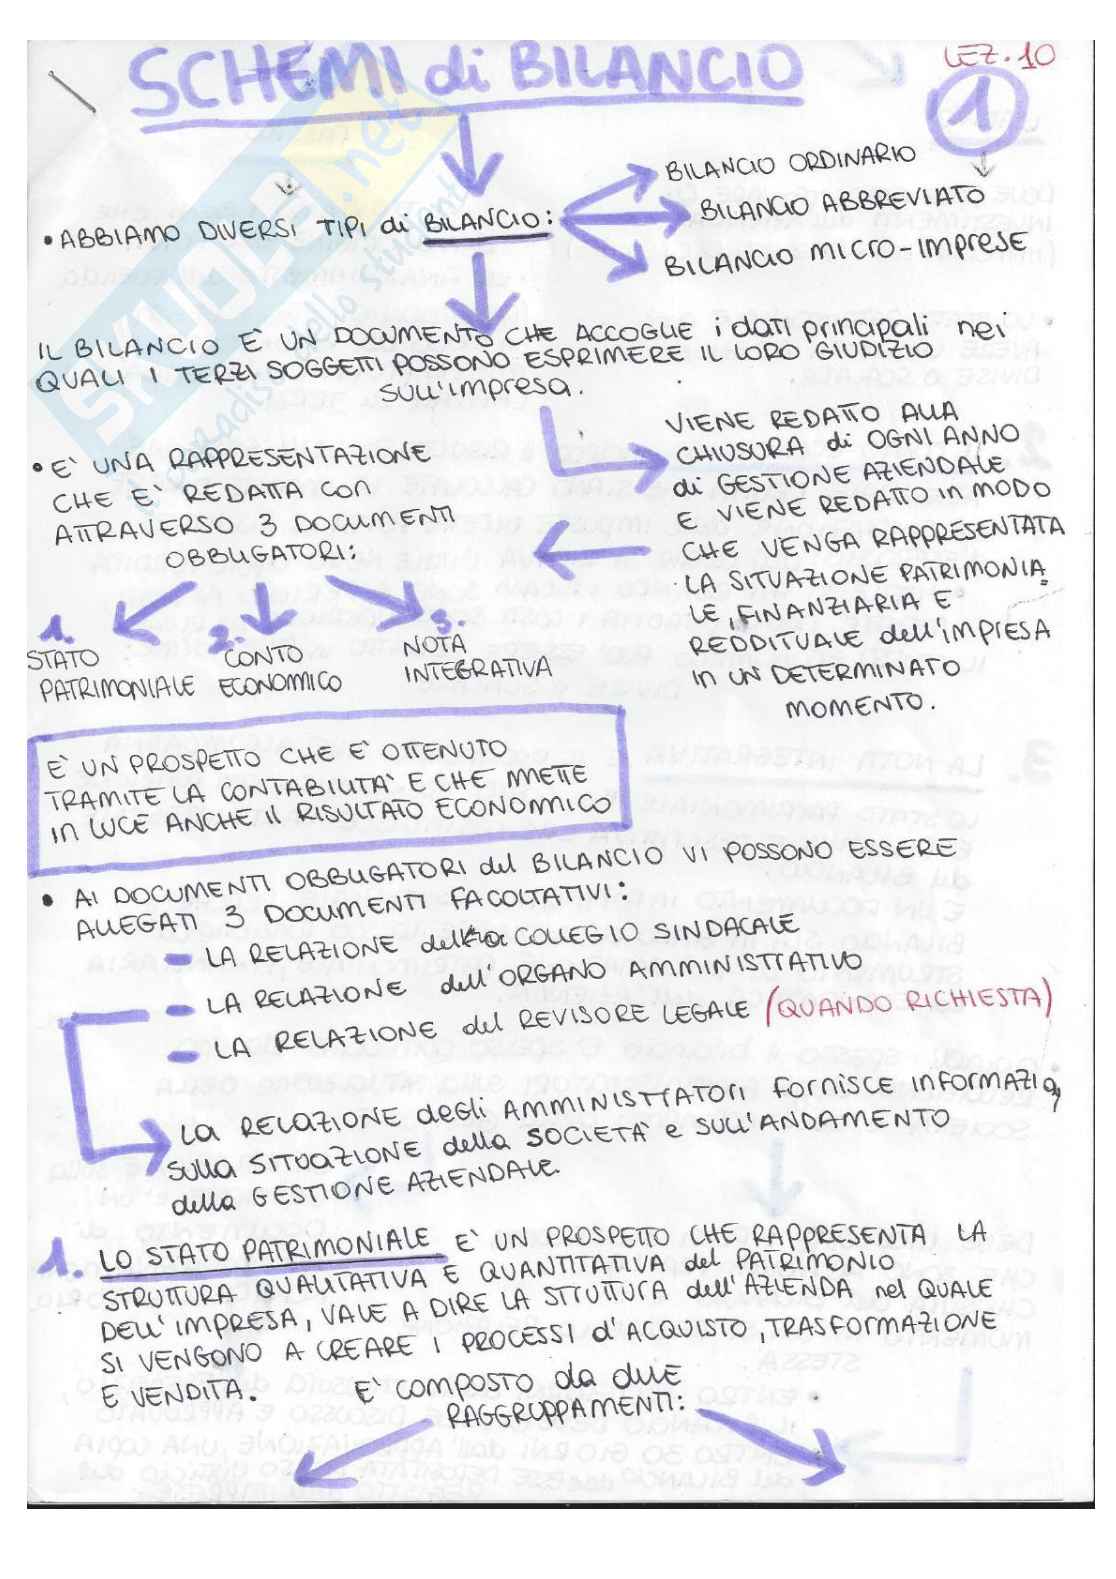 SCHEMI di BILANCIO
LEZ. 10
1
BILANCIO ORDINARIO
BILANCIO ABBREVIATO
BILANCIO MICRO-IMPRESE
• ABBIAMO DIVERSI TIPI di BILANCIO:
IL BILANCIO E' UN DOCUMENTO CHE ACCOGLIE i dati principali nei
QUALI I TERZI SOGGETTI POSSONO ESPRIMERE IL LORO GIUDIZIO
SULL'IMPRESA.
VIENE REDATTO ALLA
CHIUSURA di OGNI ANNO
di GESTIONE AZIENDALE
E VIENE REDATTO IN MODO
CHE VENGA RAPPRESENTATA
LA SITUAZIONE PATRIMONIA
LE, FINANZIARIA E
REDDITUALE dell'IMPRESA
IN UN DETERMINATO
MOMENTO.
• E' UNA RAPPRESENTAZIONE
CHE E' REDATTA con
ATTRAVERSO 3 DOCUMENTI
OBBLIGATORI:
1.
STATO
PATRIMONIALE
2.
CONTO
ECONOMICO
3.
NOTA
INTEGRATIVA
E' UN PROSPETTO CHE E' OTTENUTO
TRAMITE LA CONTABILITA' E CHE METTE
IN LUCE ANCHE IL RISULTATO ECONOMICO
• AI DOCUMENTI OBBLIGATORI del BILANCIO VI POSSONO ESSERE
ALLEGATI 3 DOCUMENTI FACOLTATIVI:
- LA RELAZIONE del COLLEGIO SINDACALE
- LA RELAZIONE dell'ORGANO AMMINISTRATIVO
- LA RELAZIONE del REVISORE LEGALE (QUANDO RICHIESTA)
La RELAZIONE degli AMMINISTRATORI FORNISCE INFORMAZIO
SULLA SITUAZIONE della SOCIETA' e SULL'ANDAMENTO
della GESTIONE AZIENDALE.
1. LO STATO PATRIMONIALE E' UN PROSPETTO CHE RAPPRESENTA LA
STRUTTURA QUALITATIVA E QUANTITATIVA del PATRIMONIO
DELL'IMPRESA, VALE A DIRE LA STRUTTURA dell'AZIENDA nel QUALE
SI VENGONO A CREARE I PROCESSI d'ACQUISTO, TRASFORMAZIONE
E VENDITA. E' COMPOSTO da due
RAGGRUPPAMENTI:
SKUOLA.net
Il paradiso dello studente